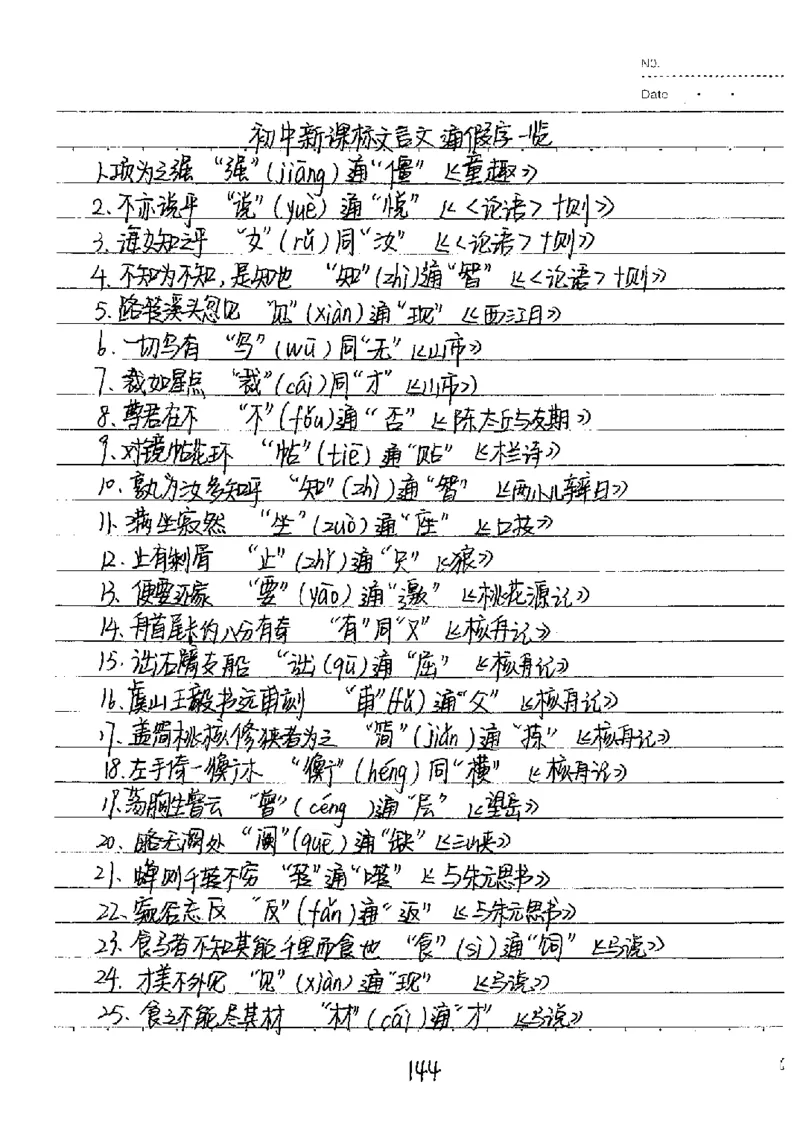 NO.
Date
初中新课标文言文通假字一览
1.项为之强 “强”(jiāng)通“僵” 《童趣》
2.不亦说乎 “说”(yuè)通“悦” 《<论语>十则》
3.诲女知之乎 “女”(rǔ)同“汝” 《<论语>十则》
4.不知为不知,是知也 “知”(zhì)通“智” 《<论语>十则》
5.路转溪头忽见 “见”(xiàn)通“现” 《西江月》
6.一切乌有 “乌”(wū)同“无” 《山市》
7.裁如星点 “裁”(cái)同“才” 《山市》
8.尊君在不 “不”(fǒu)通“否” 《陈太丘与友期》
9.对镜帖花环 “帖”(tiē)通“贴” 《木兰诗》
10.孰为汝多知乎 “知”(zhì)通“智” 《两小儿辩日》
11.满坐寂然 “坐”(zuò)通“座” 《口技》
12.止有剩屑 “止”(zhǐ)通“只” 《狼》
13.便要还家 “要”(yāo)通“邀” 《桃花源记》
14.舟首尾长约八分有奇 “有”同“又” 《核舟记》
15.诎右臂支船 “诎(qū)通“屈” 《核舟记》
16.虞山王毅书远甫刻 “甫”(fǔ)通“父” 《核舟记》
17.盖简桃核修狭者为之 “简”(jiǎn)通“拣” 《核舟记》
18.左手倚一衡木 “衡”(héng)同“横” 《核舟记》
19.荡胸生曾云 “曾”(céng )通“层” 《望岳》
20.略无阙处 “阙”(quē)通“缺” 《三峡》
21.蝉则千转不穷 “转”通“啭” 《与朱元思书》
22.窥谷忘反 “反”(fǎn)通“返” 《与朱元思书》
23.食马者不知其能千里而食也 “食”(sì)通“饲” 《马说》
24.才美不外见 “见”(xiàn)通“现” 《马说》
25.食之不能尽其材 “材”(cái)通“才” 《马说》
144